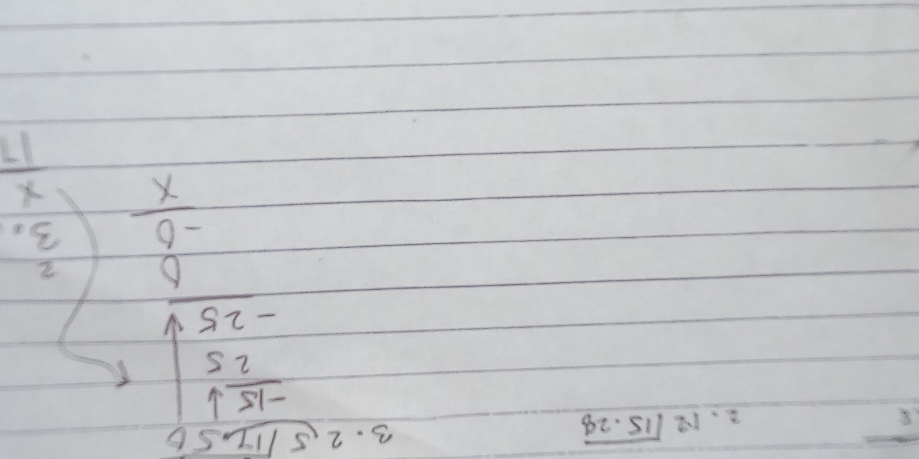 2. 12/15.28 3. 2.5/17.50
-15
25
-25
0 2
-0 3.
x x
17